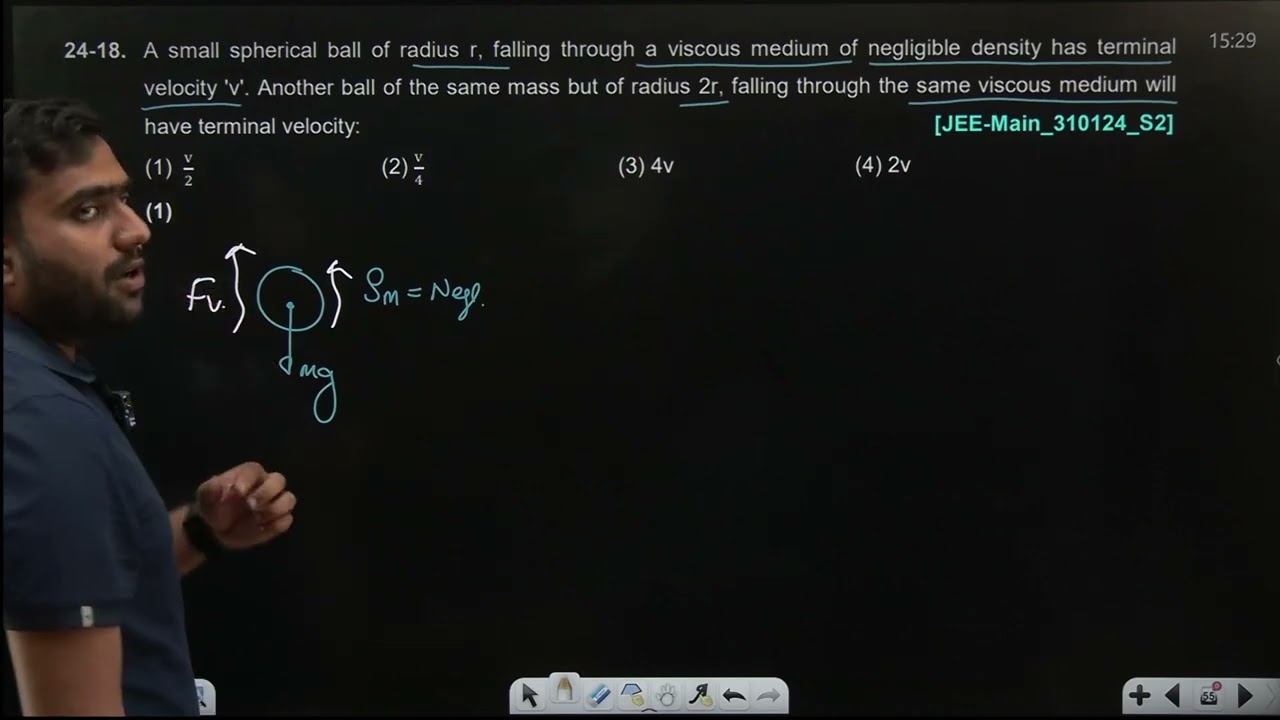 15:29
24-18. A small spherical ball of radius r, falling through a viscous medium of negligible density has terminal
velocity 'v'. Another ball of the same mass but of radius 2r, falling through the same viscous medium will
have terminal velocity: [JEE-Main_310124_S2]
(1) v/2 (2) v/4 (3) 4v (4) 2v
(1)
Fv. ρm = Negl.
mg
55